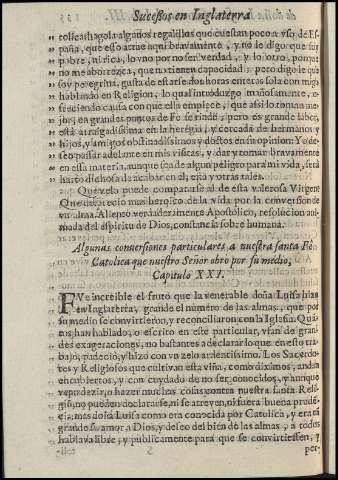 Sucessos en Inglaterra
tolica: hagola algunos regalillos que cuestan poco a vso de Es-
paña, que esso atrae aqui bravamente, y no le digo que soy
pobre, ni rica, lo vno por no ser verdad, y lo otro, porque
no me aborrezca, que no tienen capacidad; pero digole que
soy peregrina, gusta de estarse dos horas enteras sola con migo
hablando en Religion, lo qual introduzgo mañosamente, o-
freciendo causa con que ella empiece, que assi lo toman me-
jor; en grandes puntos de Fe se rinde; pero es grande labor,
està arraygadissima en la heregia, y cercada de hermanos y
hijos, y amigos obstinadissimos y doctos en su opinion: Yo de-
seo passar adelante en mis visitas, y dar y tomar bravamente
en essa materia, aunque sea de algun peligro para mi vida, serà
harto dichosa la acabar en el, esta y otras tales.
Què zelo puede compararse al de esta valerosa Virgen?
Què desprecio mas heroico de la vida por la conversion de
vn alma. Aliento verdaderamente Apostolico, resolucion ani-
mada del espiritu de Dios, constancia sobre humana.
Algunas conversiones particulares a nuestra santa Fè
Catolica que nuestro Señor obro por su medio,
Capitulo XXI.
FVe increible el fruto que la venerable doña Luisa hizo
en Inglaterra, grande el numero de las almas, que por
su medio se convirtieron, y reconciliaron con la Iglesia. Quã-
tos han hablado, o escrito en este particular, vsan de gran-
des exageraciones, no bastantes a declarar lo que en esto tra-
bajo, padeciò, y hizò con vn zelo ardentissimo. Los Sacerdo-
tes y Religiosos que cultivan esta viña, como diximos, andan
encubiertos, y con cuydado de no ser conocidos, y aunque
ven dezir, o hazer muchas cosas contra nuestra santa Reli-
giõ, no pueden declararse, ni se atreven, ni fuera buena prude-
cia; mas doña Luisa como era conocida por Catolica, y era tã
grande su amor a Dios, y deseo del bien de las almas, a todos
hablava libre, y publicamente para que se convirtiessen, y
S per-